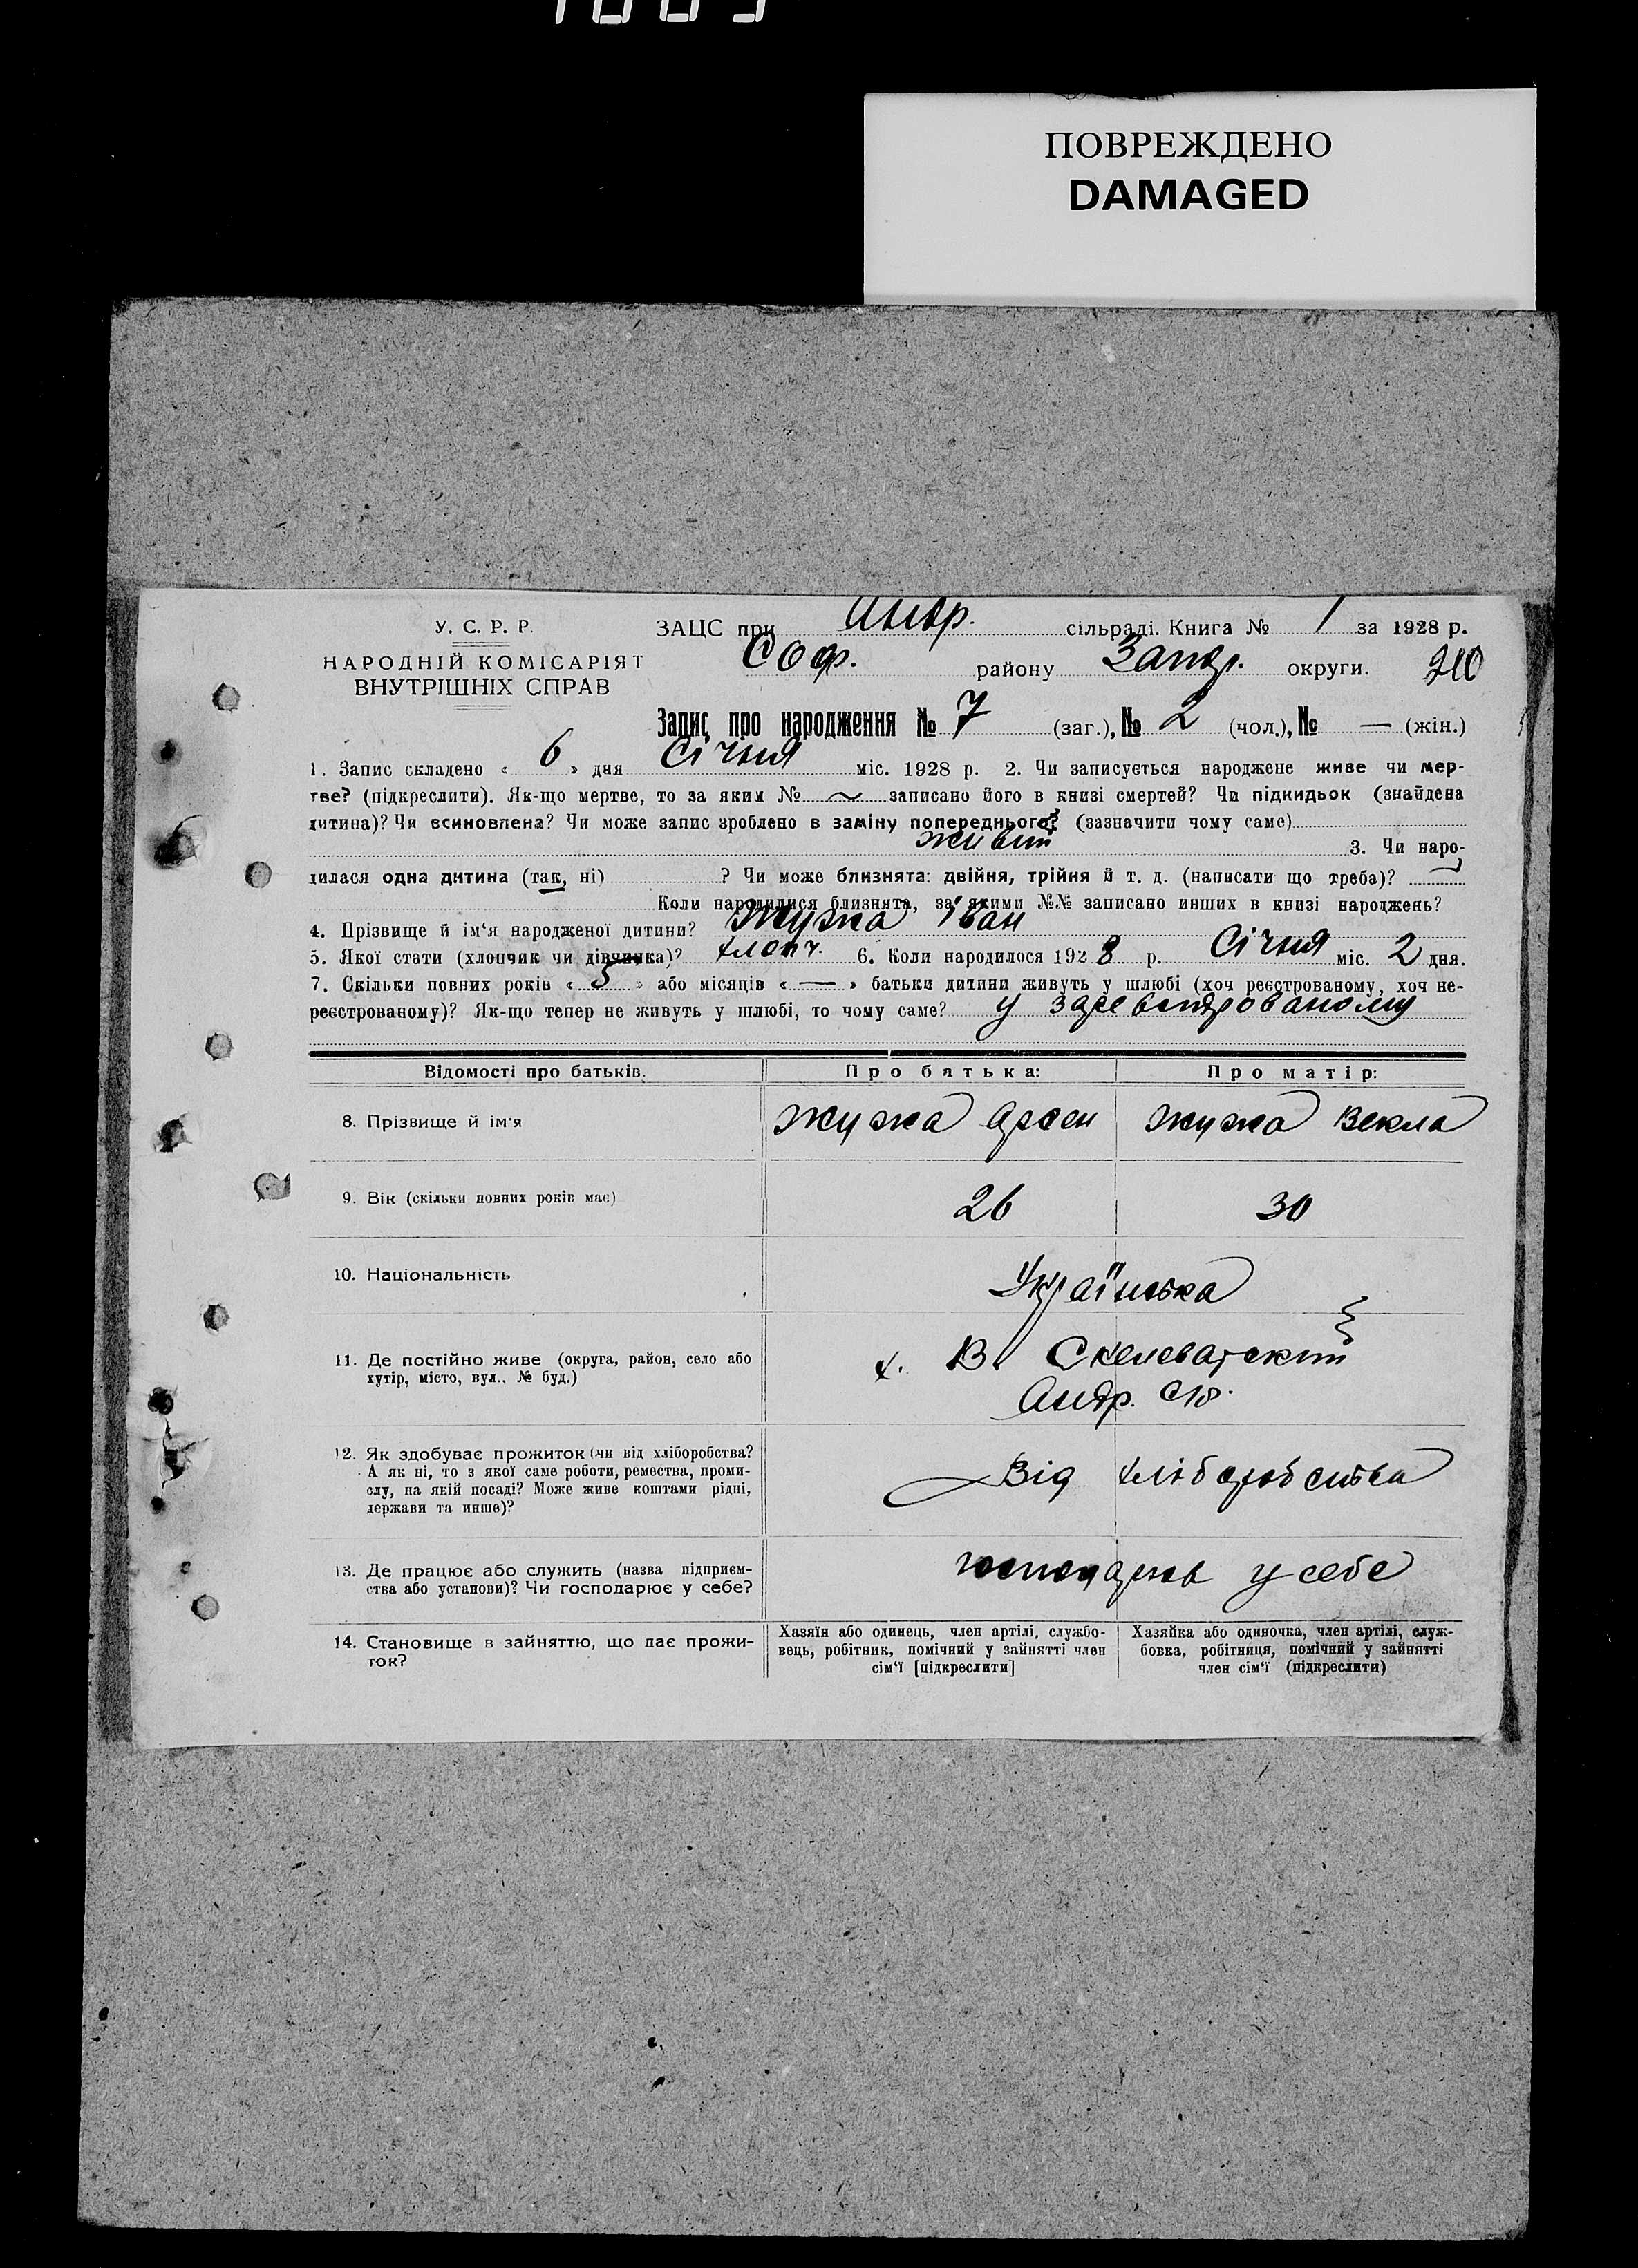 ПОВРЕЖДЕНО
DAMAGED
У. С. Р. Р.
НАРОДНІЙ КОМІСАРІЯТ
ВНУТРІШНІХ СПРАВ
ЗАЦС при Андр. сільраді. Книга № 1 за 1928 р.
Соф. району Запор. округи. 210
Запис про народження № 7 (заг.), № 2 (чол.), № — (жін.)
1. Запис складено « 6 » дня Січня міс. 1928 р. 2. Чи записується народжене живе чи мер-
тве? (підкреслити). Як-що мертве, то за яким № ~ записано його в книзі смертей? Чи підкидьок (знайдена
дитина)? Чи всиновлена? Чи може запис зроблено в заміну попереднього? (зазначити чому саме)
живий 3. Чи наро-
дилася одна дитина (так, ні) ? Чи може близнята: двійня, трійня й т. д. (написати що треба)?
Коли народилися близнята, за якими №№ записано инших в книзі народжень?
4. Прізвище й ім‘я народженої дитини? Жужа Іван
5. Якої стати (хлопчик чи дівчинка)? хлопч. 6. Коли народилося 1928 р. Січня міс. 2 дня.
7. Скільки повних років « 5 » або місяців « — » батьки дитини живуть у шлюбі (хоч реєстрованому, хоч не-
реєстрованому)? Як-що тепер не живуть у шлюбі, то чому саме? у зареєстрованому
Відомості про батьків. Про батька: Про матір:
8. Прізвище й ім‘я Жужа Арсен Жужа Векла
9. Вік (скільки повних років має) 26 30
10. Національність Українська
11. Де постійно живе (округа, район, село або
хутір, місто, вул., № буд.) х. В. Скелеватский
Андр. с/р.
12. Як здобуває прожиток (чи від хліборобства?
А як ні, то з якої саме роботи, ремества, проми-
слу, на якій посаді? Може живе коштами рідні,
держави та инше)? Від хліборобства
13. Де працює або служить (назва підприєм-
ства або установи)? Чи господарює у себе? у себе
14. Становище в зайняттю, що дає прожи-
ток?
Хазяїн або одинець, член артілі, службо-
вець, робітник, помічний у зайнятті член
сім‘ї [підкреслити]
Хазяйка або одиночка, член артілі, служ-
бовка, робітниця, помічний у зайнятті
член сім‘ї (підкреслити)